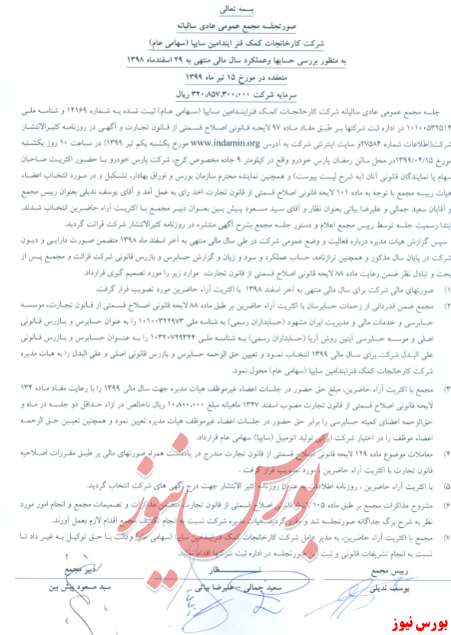 بسمه تعالی
صورتجلسه مجمع عمومی عادی سالیانه
شرکت کارخانجات کمک فنر ایندامین سایپا (سهامی عام)
به منظور بررسی حسابها وعملکرد سال مالی منتهی به ۲۹ اسفندماه ۱۳۹۸
منعقده در مورخ ۱۵ تیر ماه ۱۳۹۹
سرمایه شرکت ۳۲۰,۸۵۷,۳۰۰,۰۰۰ ریال
جلسه مجمع عمومی عادی سالیانه شرکت کارخانجات کمک فنرایندامین سایپا (سهامی عام) ثبت شده به شماره ۱۴۱۶۹ و شناسه ملی
۱۰۱۰۰۵۳۲۵۱۴ در اداره ثبت شرکتها بر طبق مفاد ماده ۹۷ لایحه قانونی اصلاح قسمتی از قانون تجارت و آگهی در روزنامه کثیرالانتشار
شرکت(اطلاعات شماره ۲۷۵۸۴ وسایت اینترنتی شرکت به آدرس www.indamin.org مورخ یکشنبه یکم تیر ۱۳۹۹) در ساعت ۱۰ روز یکشنبه
مورخ ۱۳۹۹/۰۴/۱۵ در محل سالن رمضان پارس خودرو واقع در کیلومتر ۹ جاده مخصوص کرج، شرکت پارس خودرو با حضور اکثریت صاحبان
سهام یا نمایندگان قانونی آنان (به شرح لیست پیوست) و همچنین نماینده محترم سازمان بورس و اوراق بهادار، تشکیل و در مورد انتخاب اعضاء
هیات رییسه مجمع با توجه به ماده ۱۰۱ لایحه قانونی اصلاح قسمتی از قانون تجارت اخذ رای به عمل آمد و آقای یوسف ندیلی بعنوان رییس مجمع
و آقایان سعید جمالی و علیرضا بیاتی بعنوان نظار و آقای سید مسعود پیش بین بعنوان دبیر مجمع با اکثریت آراء حاضرین انتخاب شدند.
ابتدا رسمیت جلسه توسط رییس مجمع اعلام و دستور جلسه مجمع بشرح آگهی منتشره در روزنامه کثیرالانتشار شرکت قرائت گردید.
سپس گزارش هیات مدیره درباره فعالیت و وضع عمومی شرکت در طی سال مالی منتهی به آخر اسفند ماه ۱۳۹۸ متضمن صورت دارایی و دیون
شرکت در پایان سال مذکور و همچنین ترازنامه، حساب عملکرد و سود و زیان و گزارش حسابرس و بازرس قانونی شرکت قرائت و مجمع پس از
بحث و تبادل نظر ضمن رعایت ماده ۸۸ لایحه قانونی اصلاح قسمتی از قانون تجارت، موارد زیر را مورد تصمیم گیری قرارداد.
۱) صورتهای مالی شرکت برای سال مالی منتهی به آخر اسفند ۱۳۹۸ با اکثریت آراء حاضرین مورد تصویب قرار گرفت.
۲) مجمع ضمن قدردانی از زحمات حسابرسان با اکثریت آراء حاضرین بر طبق ماده ۸۸ لایحه قانونی اصلاح قسمتی از قانون تجارت، موسسه
حسابرسی و خدمات مالی و مدیریت ایران مشهود (حسابداران رسمی) به شناسه ملی ۱۰۱۰۰۳۲۲۹۷۳ را به عنوان حسابرس و بازرس قانونی
اصلی و موسسه حسابرسی آبتین روش آریا (حسابداران رسمی) به شناسه ملی ۱۰۳۲۰۷۲۹۳۴۴ را بعنوان حسابرس و بازرس قانونی
علی البدل شرکت برای سال مالی ۱۳۹۹ انتخاب نمود و تعیین حق الزحمه حسابرس و بازرس قانونی اصلی و علی البدل را به هیات مدیره
شرکت کارخانجات کمک فنرایندامین سایپا (سهامی عام) محول نمود.
۳) مجمع با اکثریت آراء حاضرین، مبلغ حق حضور در جلسات اعضاء غیرموظف هیات مدیره جهت سال مالی ۱۳۹۹ را با رعایت مفاد ماده ۱۳۴
لایحه قانونی اصلاح قسمتی از قانون تجارت مصوب اسفند ۱۳۴۷ ماهیانه مبلغ ۱۰,۸۰۰,۰۰۰ ریال ناخالص در ازاء حداقل دو جلسه در ماه و
حق الزحمه اعضای کمیته حسابرسی را برابر حق حضور در جلسات اعضاء غیرموظف هیات مدیره تعیین نمود و همچنین تعیین حق الزحمه
اعضاء موظف را در اختیار شرکت ایرانی تولید اتومبیل (سایپا) سهامی عام قرارداد.
۴) معاملات موضوع ماده ۱۲۹ لایحه قانونی اصلاح قسمتی از قانون تجارت مندرج در یادداشت همراه صورتهای مالی بر طبق مقررات اصلاحیه
قانون تجارت با اکثریت آراء حاضرین مورد تصویب قرار گرفت.
۵) با اکثریت آراء حاضرین، روزنامه اطلاعات به عنوان روزنامه کثیر الانتشار جهت درج آگهی های شرکت انتخاب گردید.
۶) مشروح مذاکرات مجمع بر طبق ماده ۱۰۵ لایحه قانونی اصلاح قسمتی از قانون تجارت متضمن مذاکرات و تصمیمات مجمع و انجام امور مورد
نظر به شرح برگ جداگانه صورتجلسه شد و مقرر گردید هیات مدیره شرکت نسبت به انجام تکالیف مجمع اقدام لازم بعمل آورند.
۷) با اکثریت آراء حاضرین، به مدیر عامل شرکت کارخانجات کمک فنرایندامین سایپا (سهامی عام) وکالت با حق توکیل به غیر داد تا
نسبت به انجام تشریفات قانونی و ثبت این صورتجلسه در اداره ثبت شرکتها اقدام نماید.
رییس مجمع نظار دبیر مجمع
یوسف ندیلی سعید جمالی علیرضا بیاتی سید مسعود پیش بین
بورس نیوز
بورس نیوز